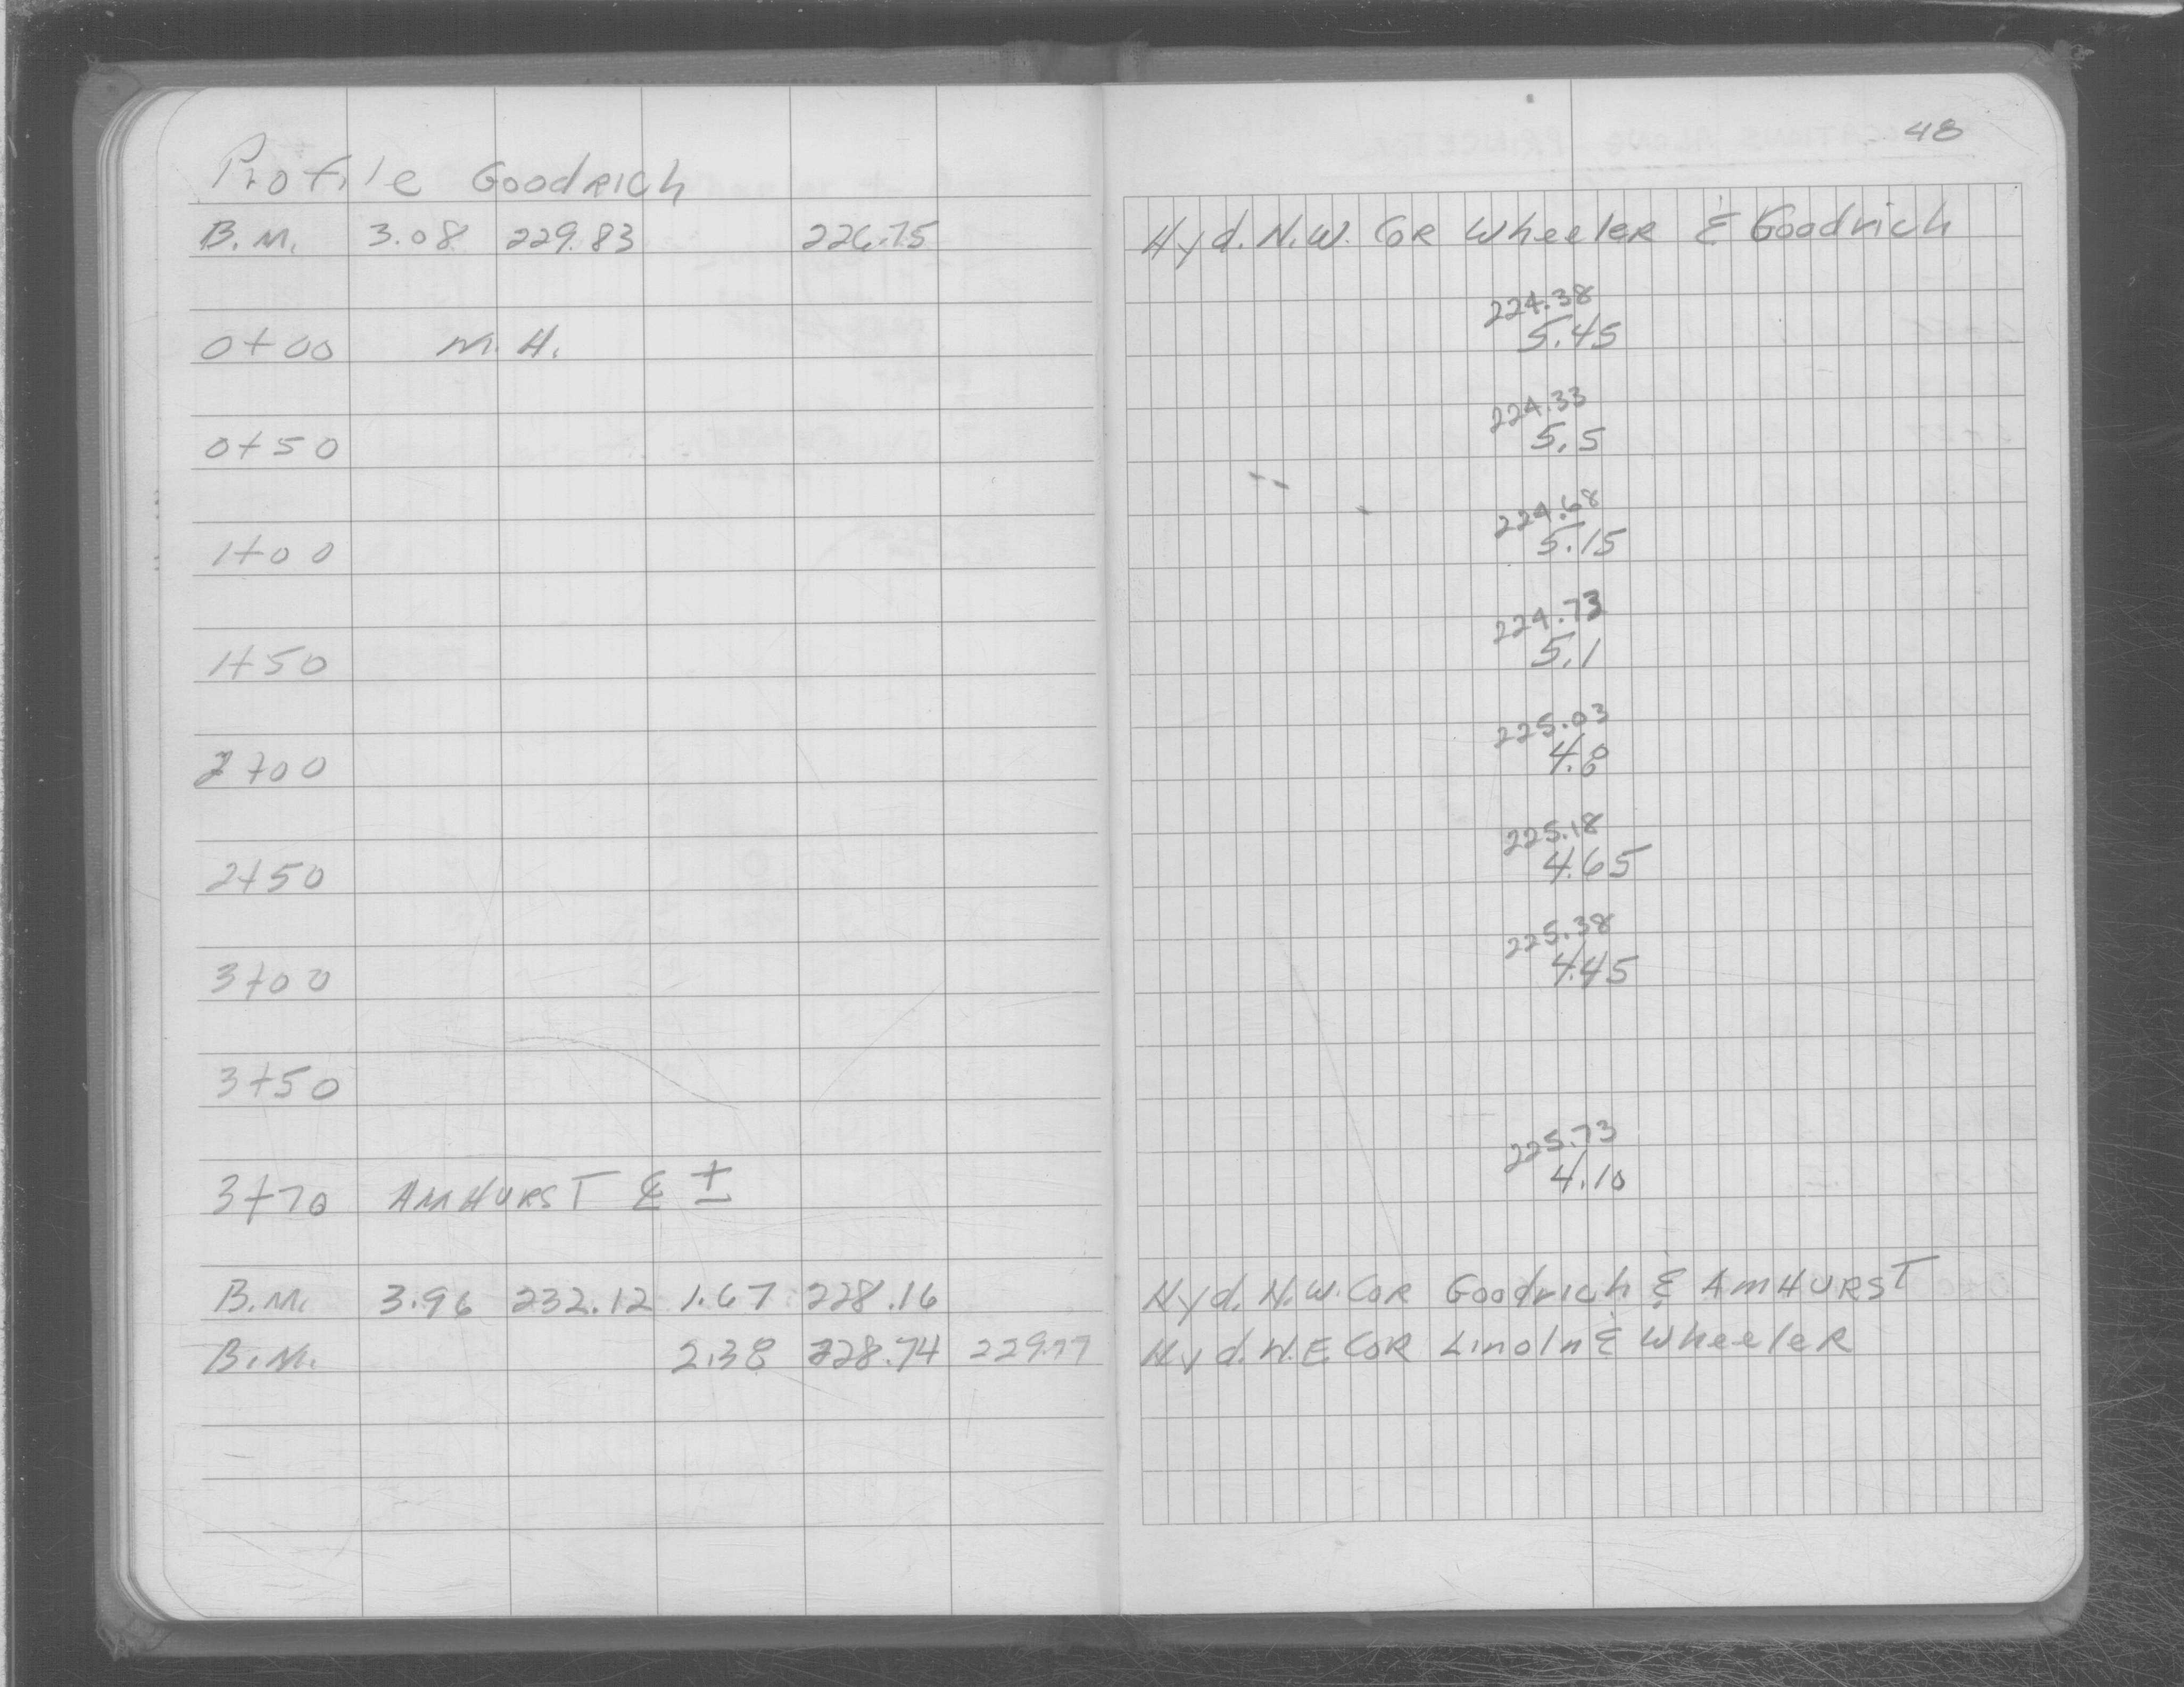 48
Profile Goodrich
B.M. 3.08 229.83 226.75 Hyd. N.W. Cor Wheeler & Goodrich
224.38
0+00 M.H. 5.45
224.33
0+50 5.5
224.68
1+00 5.15
224.73
1+50 5.1
225.03
2+00 4.8
225.18
2+50 4.65
225.38
3+00 4.45
3+50
225.73
3+70 AMHURST ℄ ± 4.10
B.M. 3.96 232.12 1.67 228.16 Hyd. N.W. Cor Goodrich & AMHURST
B.M. 2.38 228.74 229.77 Hyd. N.E. Cor Linoln & Wheeler